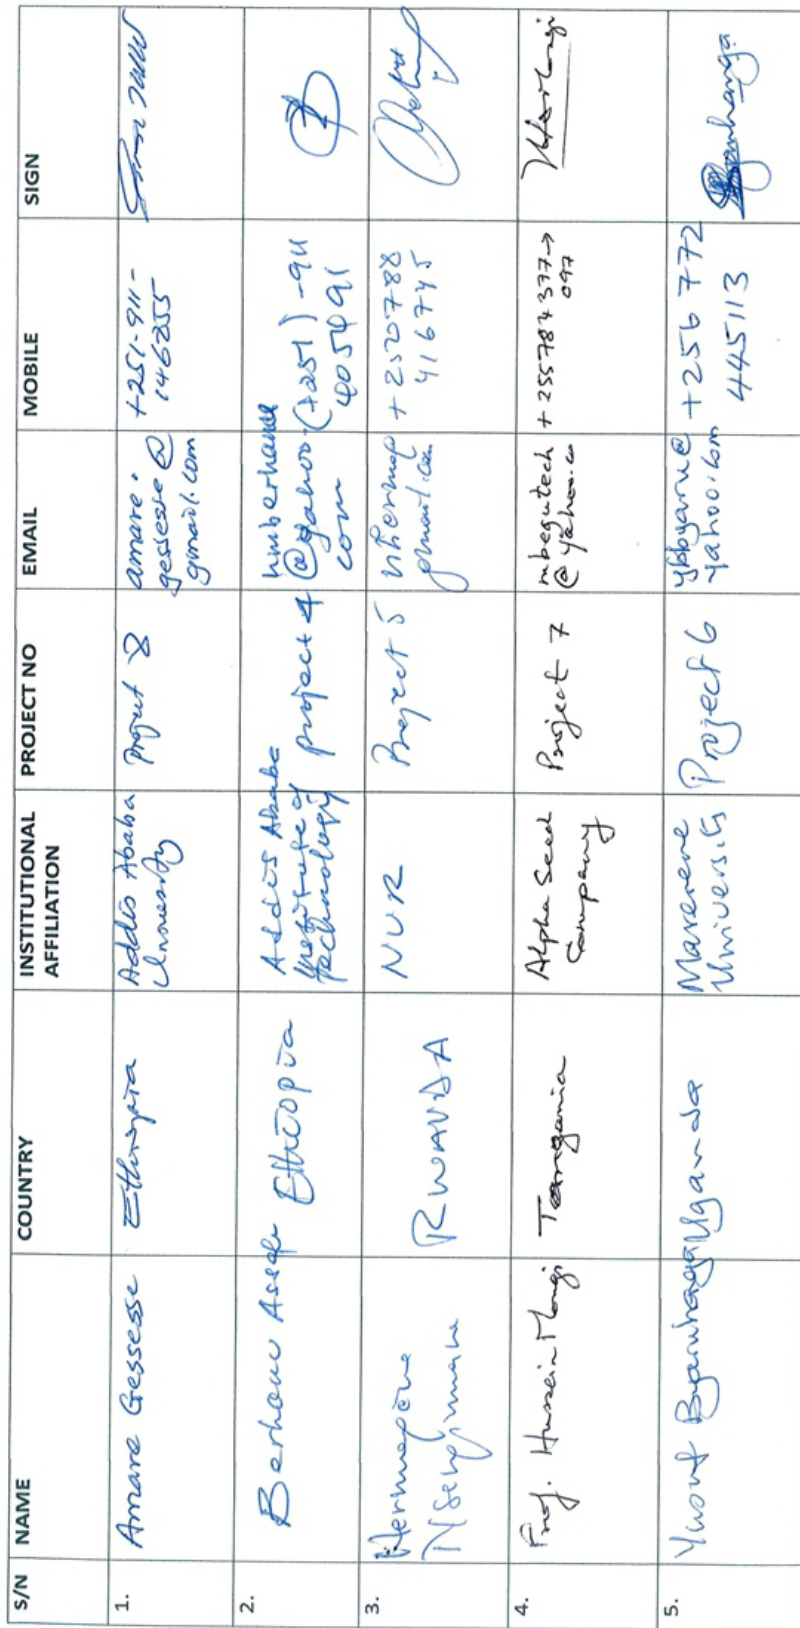 S/N NAME COUNTRY INSTITUTIONAL AFFILIATION PROJECT NO EMAIL MOBILE SIGN
1. Amare Gessesse Ethiopia Addis Ababa University Project 8 amare.gessesse@gmail.com +251-911-146255
2. Berhanu Assefa Ethiopia Addis Ababa Institute of Technology project 4 @yahoo.com (+251)-911 405491
3. RWANDA NUR Project 5 gmail.com +250788 416745
4. Prof. Hussein Mongi Tanzania Alpha Seed Company Project 7 mbegutech@yahoo.co +255784377→097
5. Yusuf Byaruhanga Uganda Makerere University Project 6 yahoo.com +256 772 445113